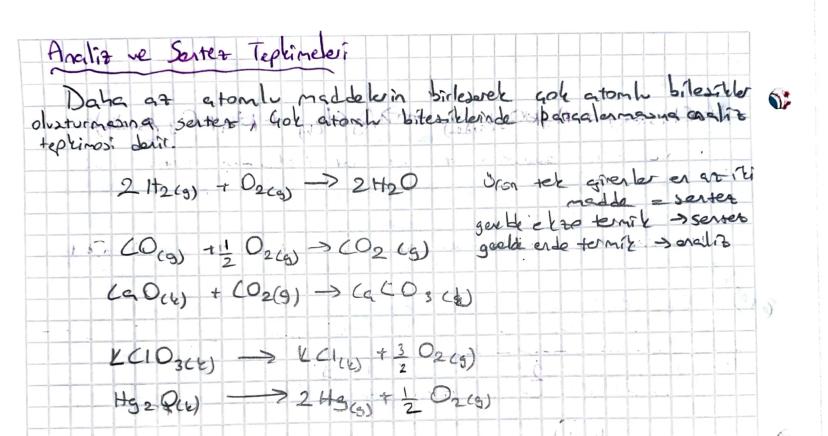 Analiz ve Sentez Tepkimeleri
Daha az atomlu maddelerin birleşerek çok atomlu bileşikler
oluşturmasına sentez, çok atomlu bileşiklerinde parçalanmasına analiz
tepkimesi denir.
2 H2(g) + O2(g) → 2 H2O
Ürün tek girenler en az iki
madde = sentez
genelde ekzo termik → sentez
CO(g) + 1/2 O2(g) → CO2 (g)
genelde endo termik → analiz
CaO(k) + CO2(g) → CaCO3 (k)
KClO3(k) → KCl(k) + 3/2 O2(g)
Hg2O(k) → 2 Hg(g) + 1/2 O2(g)